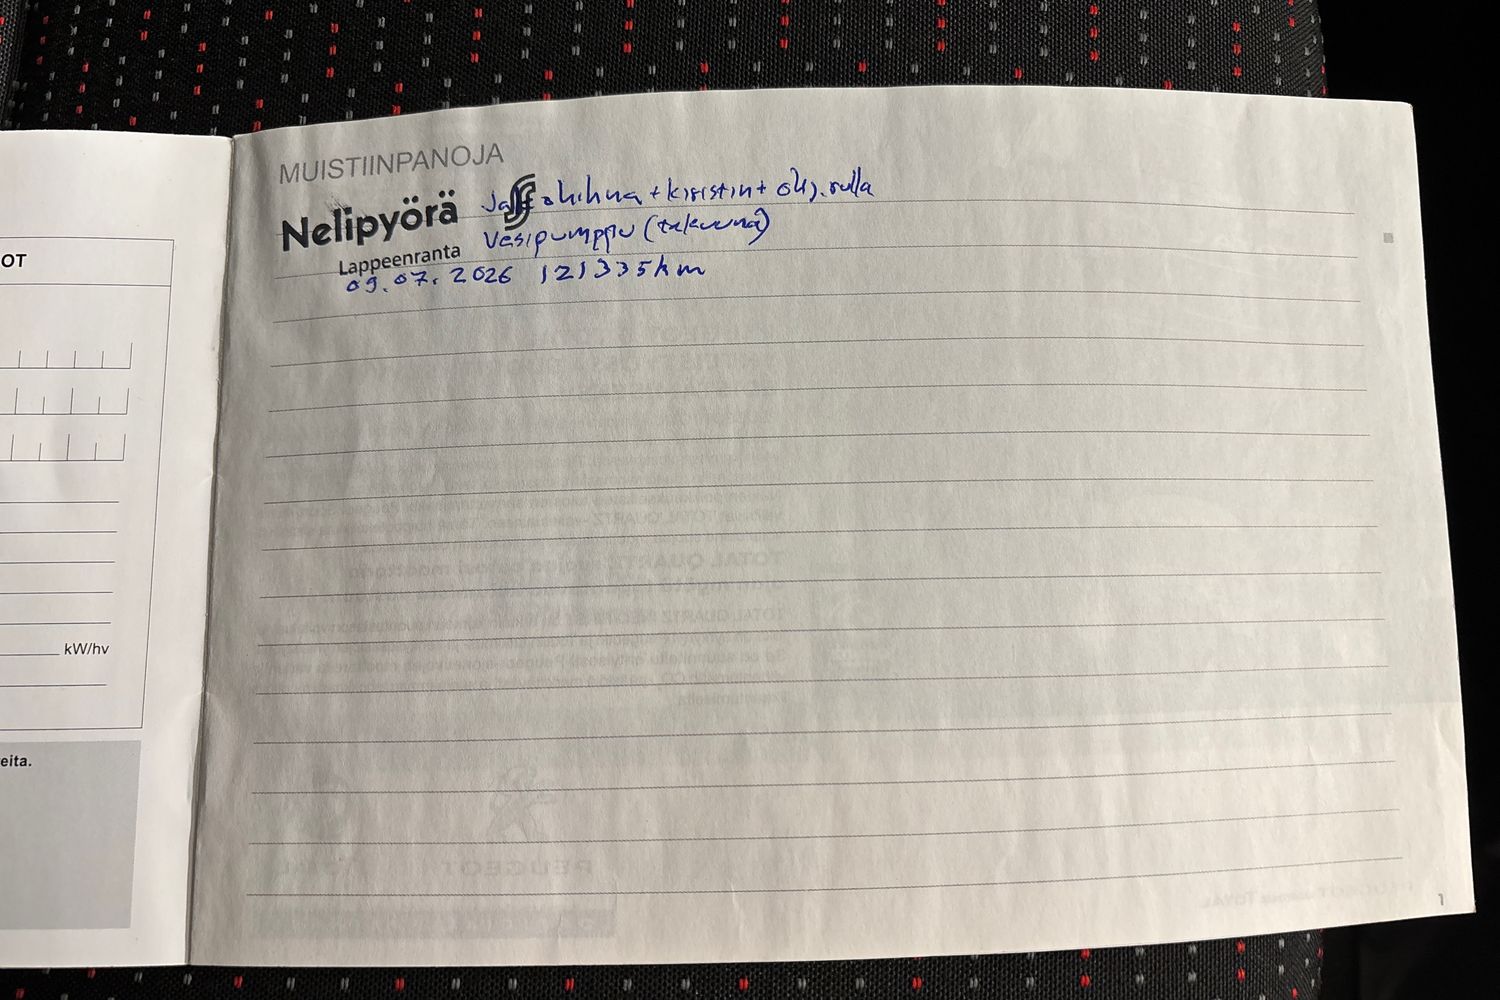 OT
kW/hv
eita.
MUISTIINPANOJA
Nelipyörä
Lappeenranta
hihna + kiristin + ohj. rulla
Vesipumppu (takuuna)
09.07.2026 121335km
1